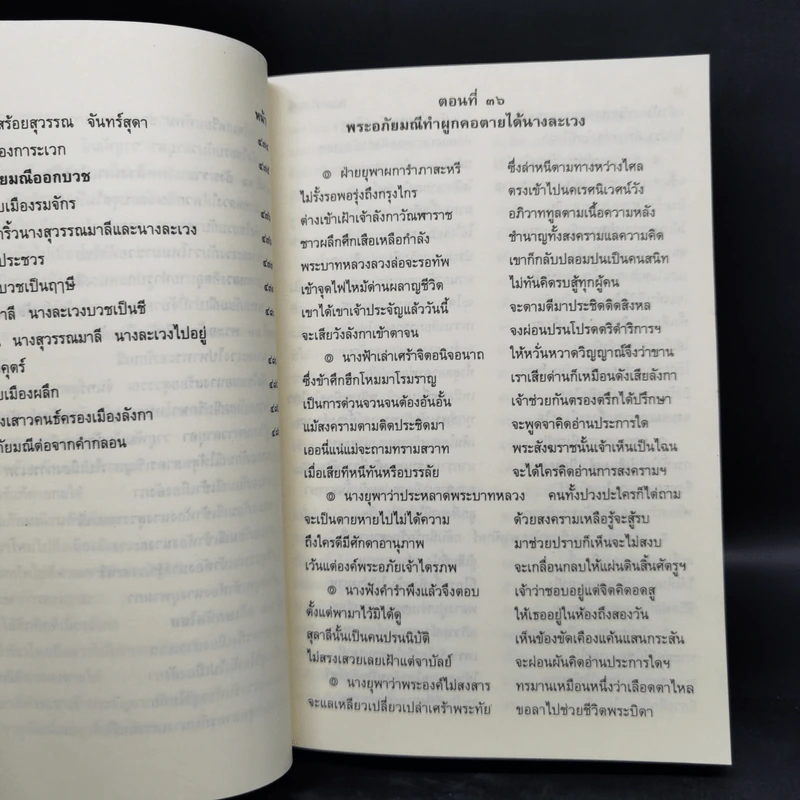 หน้า
สร้อยสุวรรณ จันทร์สุดา
องการะเวก
ยมณีออกบวช
ยเมืองรมจักร
าริ้วนางสุวรรณมาลีและนางละเวง
ประชวร
บวชเป็นฤาษี
าลี นางละเวงบวชเป็นชี
นางสุวรรณมาลี นางละเวงไปอยู่
คุตร์
ยเมืองผลึก
งเสาวคนธ์ครองเมืองลังกา
ภัยมณีต่อจากคำกลอน
ตอนที่ ๓๖
พระอภัยมณีทำผูกคอตายได้นางละเวง
๏ ฝ่ายยุพาผการำภาสะหรี ซึ่งล่าหนีตามทางหว่างไศล
ไม่รั้งรอพอรุ่งถึงกรุงไกร ตรงเข้าไปนคเรศนิเวศน์วัง
ต่างเข้าเฝ้าเจ้าลังกาวัณพาราช อภิวาททูลตามเนื้อความหลัง
ชาวผลึกศึกเสือเหลือกำลัง ชำนาญทั้งสงครามแลความคิด
พระบาทหลวงลวงล่อจะรอทัพ เข้าก็กลับปลอมปนเป็นคนสนิท
เข้าจุดไฟไหม้ด่านผลาญชีวิต ไม่ทันคิดรบสู้ทุกผู้คน
เขาได้เขาเจ้าประจัญแล้ววันนี้ จะตามตีมาประชิดติดสิงหล
จะเสียวังลังกาเข้าตาจน จงผ่อนปรนโปรดตริดำริการฯ
๏ นางฟ้าเล่าเศร้าจิตอนิจอนาถ ให้หวั่นหวาดวิญญาณ์จึงว่าขาน
ซึ่งข้าศึกฮึกโหมมาโรมราญ เราเสียด่านก็เหมือนดังเสียลังกา
เป็นการด่วนจวนจนต้องอั้นอั้น เจ้าช่วยกันตรองตรึกได้ปรึกษา
แม้สงครามตามติดประชิดมา จะพูดจาคิดอ่านประการใด
เออนี่แน่แม่จะถามทรามสวาท พระสังฆราชนั้นเจ้าเห็นเป็นไฉน
เมื่อเสียทีหนีทันหรือบรรลัย จะได้ใครคิดอ่านการสงครามฯ
๏ นางยุพาว่าประหลาดพระบาทหลวง คนทั้งปวงปะใครก็ไต่ถาม
จะเป็นตายหายไปไม่ได้ความ ด้วยสงครามเหลือรู้จะสู้รบ
ถึงใครดีมีศักดาอานุภาพ มาช่วยปราบก็เห็นจะไม่สงบ
เว้นแต่องค์พระอภัยเจ้าไตรภพ จะเกลื่อนกลบให้แผ่นดินสิ้นศัตรูฯ
๏ นางฟังคำรำพึงแล้วจึงตอบ เจ้าว่าชอบอยู่แต่จิตคิดอดสู
ตั้งแต่พามาไว้มิได้ดู ให้เธออยู่ในห้องถึงสองวัน
สุลาลีนั้นเป็นคนปรนนิบัติ เห็นข้องขัดเคืองแค้นแสนกระสัน
ไม่สรงเสวยเลยเฝ้าแต่จาบัลย์ จะผ่อนผันคิดอ่านประการใดฯ
๏ นางยุพาว่าพระองค์ไม่สงสาร ทรมานเหมือนหนึ่งว่าเลือดตาไหล
จะแลเหลียวเปลี่ยวเปล่าเศร้าพระทัย ขอลาไปช่วยชีวิตพระบิดา